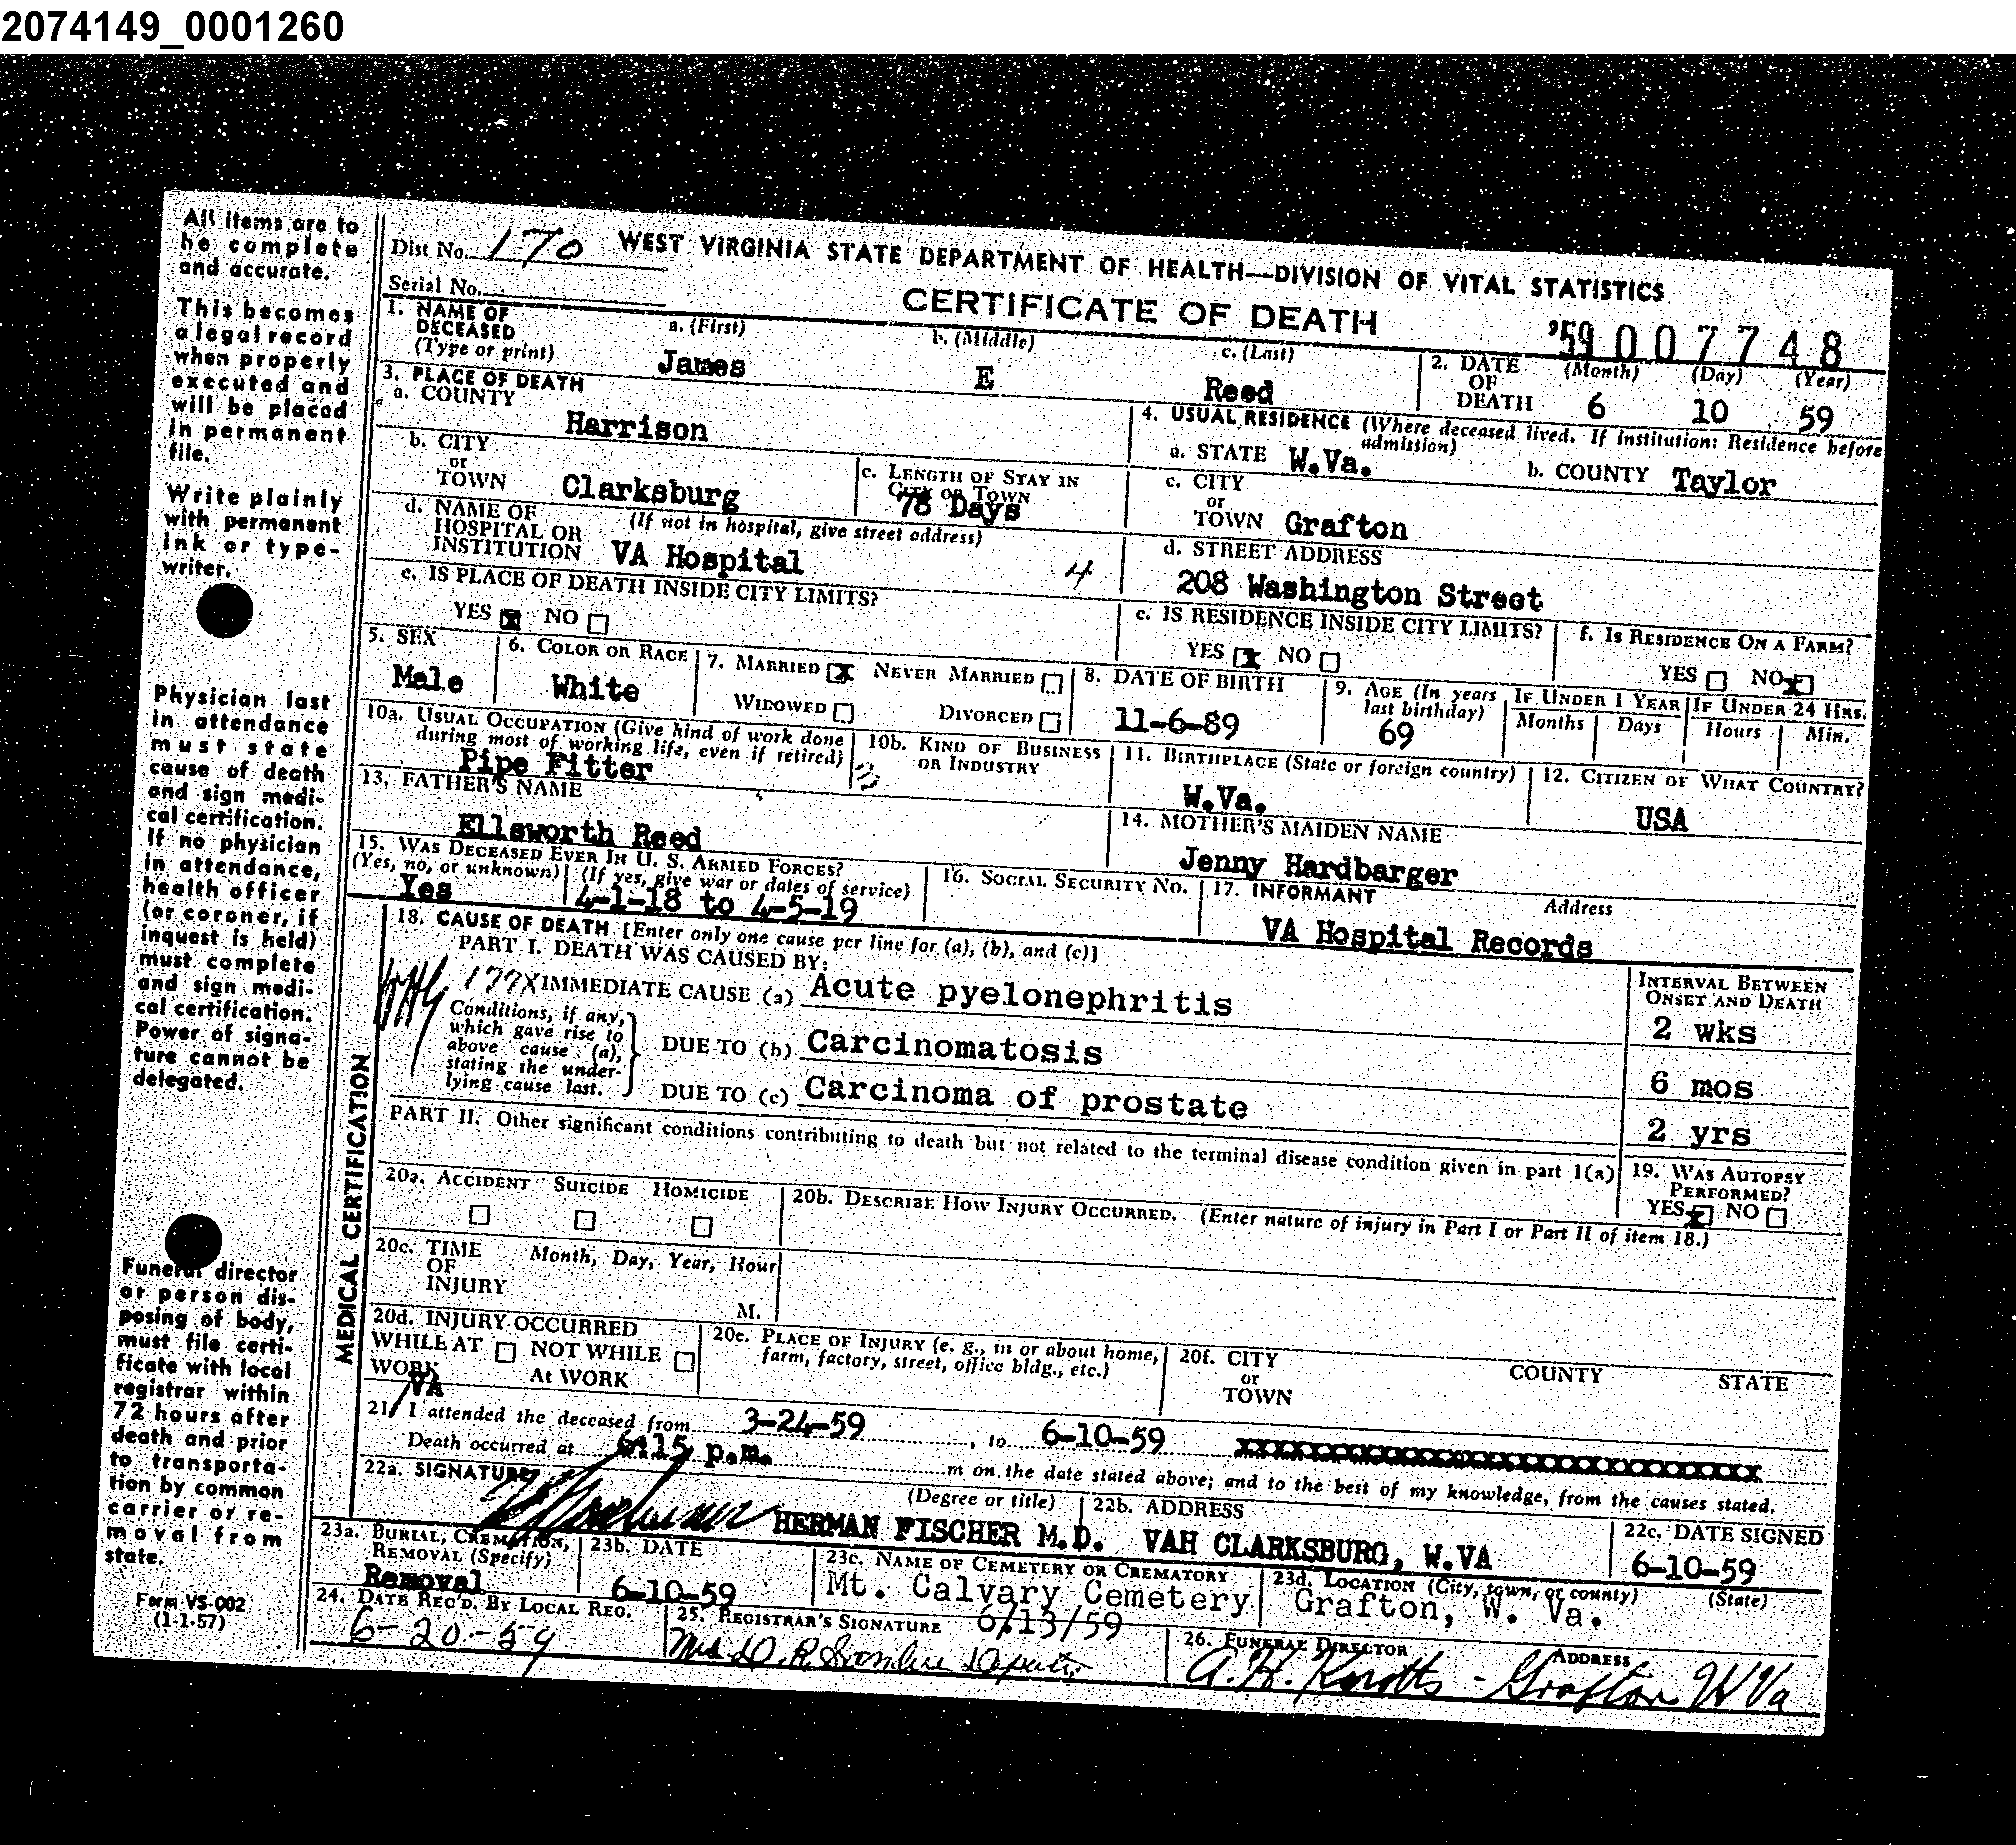 2074149_0001260
All items are to
be complete
and accurate.
This becomes
a legal record
when properly
executed and
will be placed
in permanent
file.
Write plainly
with permanent
ink or type-
writer.
Physician last
in attendance
must state
cause of death
and sign medi-
cal certification.
If no physician
in attendance,
health officer
(or coroner, if
inquest is held)
must complete
and sign medi-
cal certification.
Power of signa-
ture cannot be
delegated.
Funeral director
or person dis-
posing of body,
must file certi-
ficate with local
registrar within
72 hours after
death and prior
to transporta-
tion by common
carrier or re-
moval from
state.
Form VS-002
(1-1-57)
Dist No. 170 WEST VIRGINIA STATE DEPARTMENT OF HEALTH—DIVISION OF VITAL STATISTICS
Serial No.
CERTIFICATE OF DEATH
'59 007748
1. NAME OF DECEASED (Type or print) a. (First) James b. (Middle) E c. (Last) Reed
2. DATE OF DEATH (Month) 6 (Day) 10 (Year) 59
3. PLACE OF DEATH
a. COUNTY Harrison
4. USUAL RESIDENCE (Where deceased lived. If institution: Residence before admission)
a. STATE W.Va. b. COUNTY Taylor
b. CITY or TOWN Clarksburg
c. LENGTH OF STAY IN CITY OR TOWN 78 Days
c. CITY or TOWN Grafton
d. NAME OF HOSPITAL OR INSTITUTION (If not in hospital, give street address) VA Hospital 4
d. STREET ADDRESS 208 Washington Street
e. IS PLACE OF DEATH INSIDE CITY LIMITS? YES x NO
e. IS RESIDENCE INSIDE CITY LIMITS? YES x NO
f. IS RESIDENCE ON A FARM? YES NO x
5. SEX Male
6. COLOR OR RACE White
7. MARRIED x NEVER MARRIED
WIDOWED DIVORCED
8. DATE OF BIRTH 11-6-89
9. AGE (In years last birthday) 69
IF UNDER 1 YEAR Months Days
IF UNDER 24 HRS. Hours Min.
10a. USUAL OCCUPATION (Give kind of work done during most of working life, even if retired) Pipe Fitter
10b. KIND OF BUSINESS OR INDUSTRY
11. BIRTHPLACE (State or foreign country) W.Va.
12. CITIZEN OF WHAT COUNTRY? USA
13. FATHER'S NAME Ellsworth Reed
14. MOTHER'S MAIDEN NAME Jenny Hardbarger
15. WAS DECEASED EVER IN U. S. ARMED FORCES?
(Yes, no, or unknown) Yes (If yes, give war or dates of service) 4-1-18 to 4-5-19
16. SOCIAL SECURITY NO.
17. INFORMANT Address VA Hospital Records
MEDICAL CERTIFICATION
18. CAUSE OF DEATH [Enter only one cause per line for (a), (b), and (c)]
PART I. DEATH WAS CAUSED BY:
177X IMMEDIATE CAUSE (a) Acute pyelonephritis
INTERVAL BETWEEN ONSET AND DEATH
2 wks
Conditions, if any, which gave rise to above cause (a), stating the underlying cause last.
DUE TO (b) Carcinomatosis 6 mos
DUE TO (c) Carcinoma of prostate 2 yrs
PART II. Other significant conditions contributing to death but not related to the terminal disease condition given in part I(a)
19. WAS AUTOPSY PERFORMED? YES x NO
20a. ACCIDENT SUICIDE HOMICIDE
20b. DESCRIBE HOW INJURY OCCURRED. (Enter nature of injury in Part I or Part II of item 18.)
20c. TIME OF INJURY Month, Day, Year, Hour M.
20d. INJURY OCCURRED WHILE AT WORK NOT WHILE At WORK
20e. PLACE OF INJURY (e. g., in or about home, farm, factory, street, office bldg., etc.)
20f. CITY or TOWN COUNTY STATE
VA
21. I attended the deceased from 3-24-59, to 6-10-59 xxxxxxxxxxxxxxxxxxxxxxxxxxxxxxxx
Death occurred at 6:15 p.m. m on the date stated above; and to the best of my knowledge, from the causes stated.
22a. SIGNATURE (Degree or title) HERMAN FISCHER M.D.
22b. ADDRESS VAH CLARKSBURG, W.VA
22c. DATE SIGNED 6-10-59
23a. BURIAL, CREMATION, REMOVAL (Specify) Removal
23b. DATE 6-10-59
23c. NAME OF CEMETERY OR CREMATORY Mt. Calvary Cemetery
6/13/59
23d. LOCATION (City, town, or county) (State) Grafton, W. Va.
24. DATE REC'D. BY LOCAL REG. 6-20-59
25. REGISTRAR'S SIGNATURE Mrs. D. R. Deputy
26. FUNERAL DIRECTOR ADDRESS A. H. Knotts - Grafton W Va